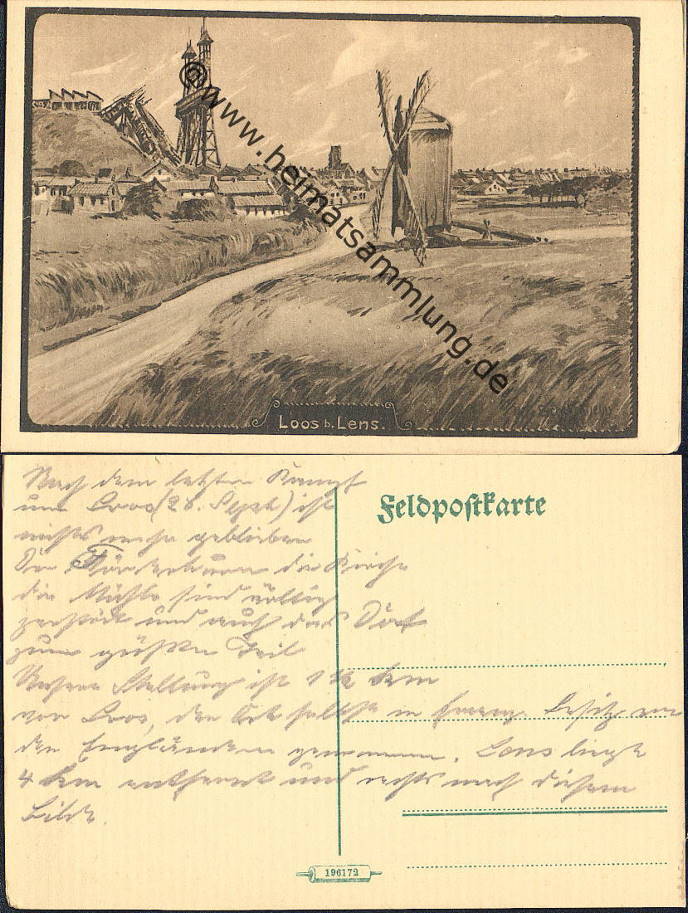 © www.heimatsammlung.de
Loos b. Lens.
Feldpostkarte
Nach dem letzten Kampf
um Loos (26. Sept.) ist
nichts mehr geblieben
Der Förderturm die Kirche
die Mühle sind völlig
zerstört und auch das Dorf
zum größten Teil
Unsere Stellung ist 1 ½ km
von Loos, der Ort selbst in Besitz von
den Engländern genommen. Lens liegt
4 km entfernt und rechts nach diesem
Bilde.
196172